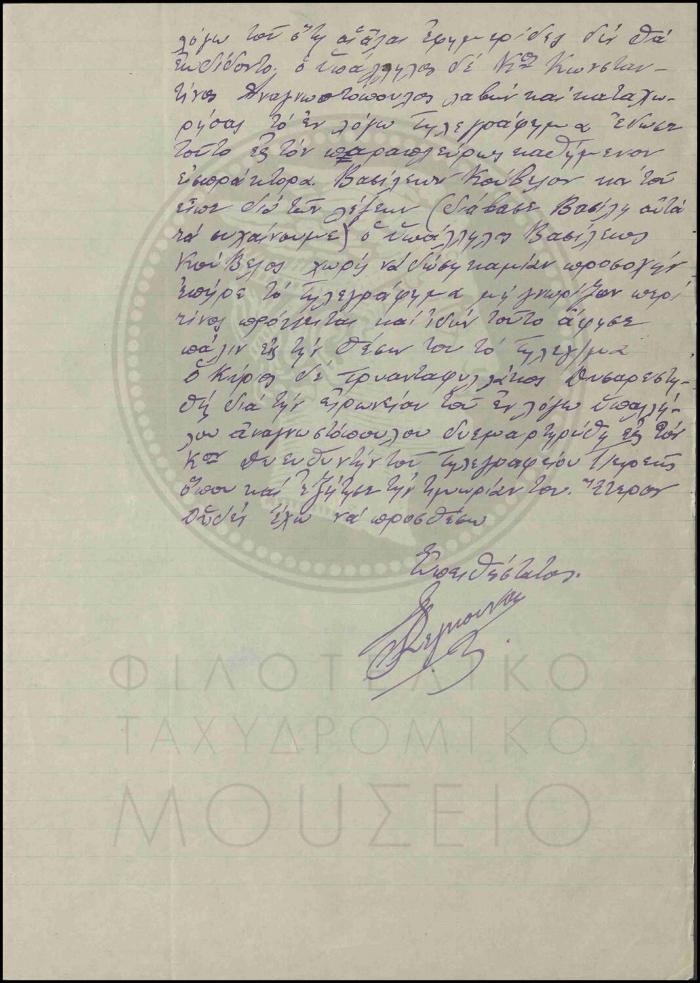 λόγω τοῦ ὅτι αἱ ἄλλαι ἐφημερίδες δέν θά
ἐκδίδοντο. ὁ ὑπάλληλος δέ Κος Κωνσταν-
τῖνος Ἀναγνωστόπουλος λαβών καί καταχω-
ρήσας τό ἐν λόγω τηλεγράφημα ἔδωσε
τοῦτο εἰς τόν παραπλεύρως καθήμενον
εἰσπράκτορα Βασίλειον Κούβελον καί τοῦ
εἶπε διά τῶν λέξεων (διάβασε Βασίλη αὐτά
τά) ὁ ὑπάλληλος Βασίλειος
Κούβελος χωρίς νά δώση καμίαν προσοχήν
ἐπῆρε τό τηλεγράφημα μή γνωρίζων περί
τίνος πρόκειται καί ἰδών τοῦτο ἄφησε
πάλιν εἰς τήν θέσιν του τό τηλεγ/μα
ὁ Κύριος δέ Τριανταφυλλάκος δυσαρεστη-
θείς διά τήν εἰρωνείαν τοῦ ἐν λόγω ὑπαλλή-
λου Ἀναγνωστόπουλου διεμαρτυρήθη εἰς τόν
Κον Διευθυντήν τοῦ τηλεγραφείου
ὅπου καί ἐζήτησε τήν τιμωρίαν του. Ἕτερον
οὐδέν ἔχω νά προσθέσω
Εὐπειθέστατος.
ΦΙΛΟΤΕΛΙΚΟ
ΤΑΧΥΔΡΟΜΙΚΟ
ΜΟΥΣΕΙΟ